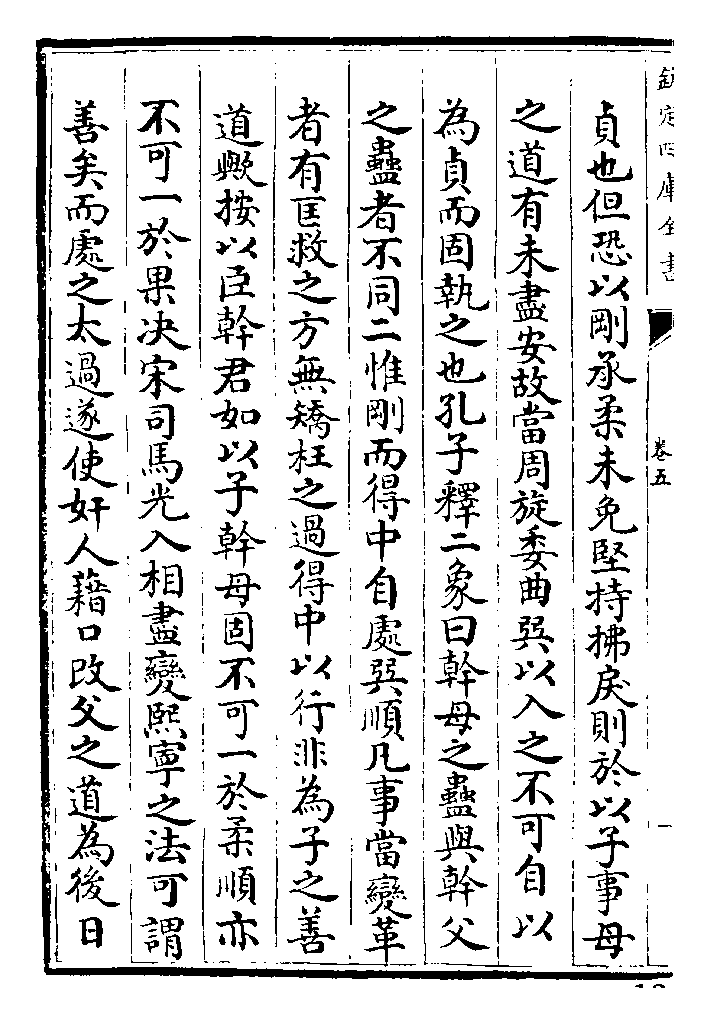 欽定四庫全書
卷五
貞也但恐以剛承柔未免堅持拂戾則於以子事母
之道有未盡安故當周旋委曲巽以入之不可自以
為貞而固執之也孔子釋二象曰幹母之蠱與幹父
之蠱者不同二惟剛而得中自處巽順凡事當變革
者有匡救之方無矯枉之過得中以行非為子之善
道歟按以臣幹君如以子幹母固不可一於柔順亦
不可一於果决宋司馬光入相盡變熙寧之法可謂
善矣而處之太過遂使奸人藉口改父之道為後日